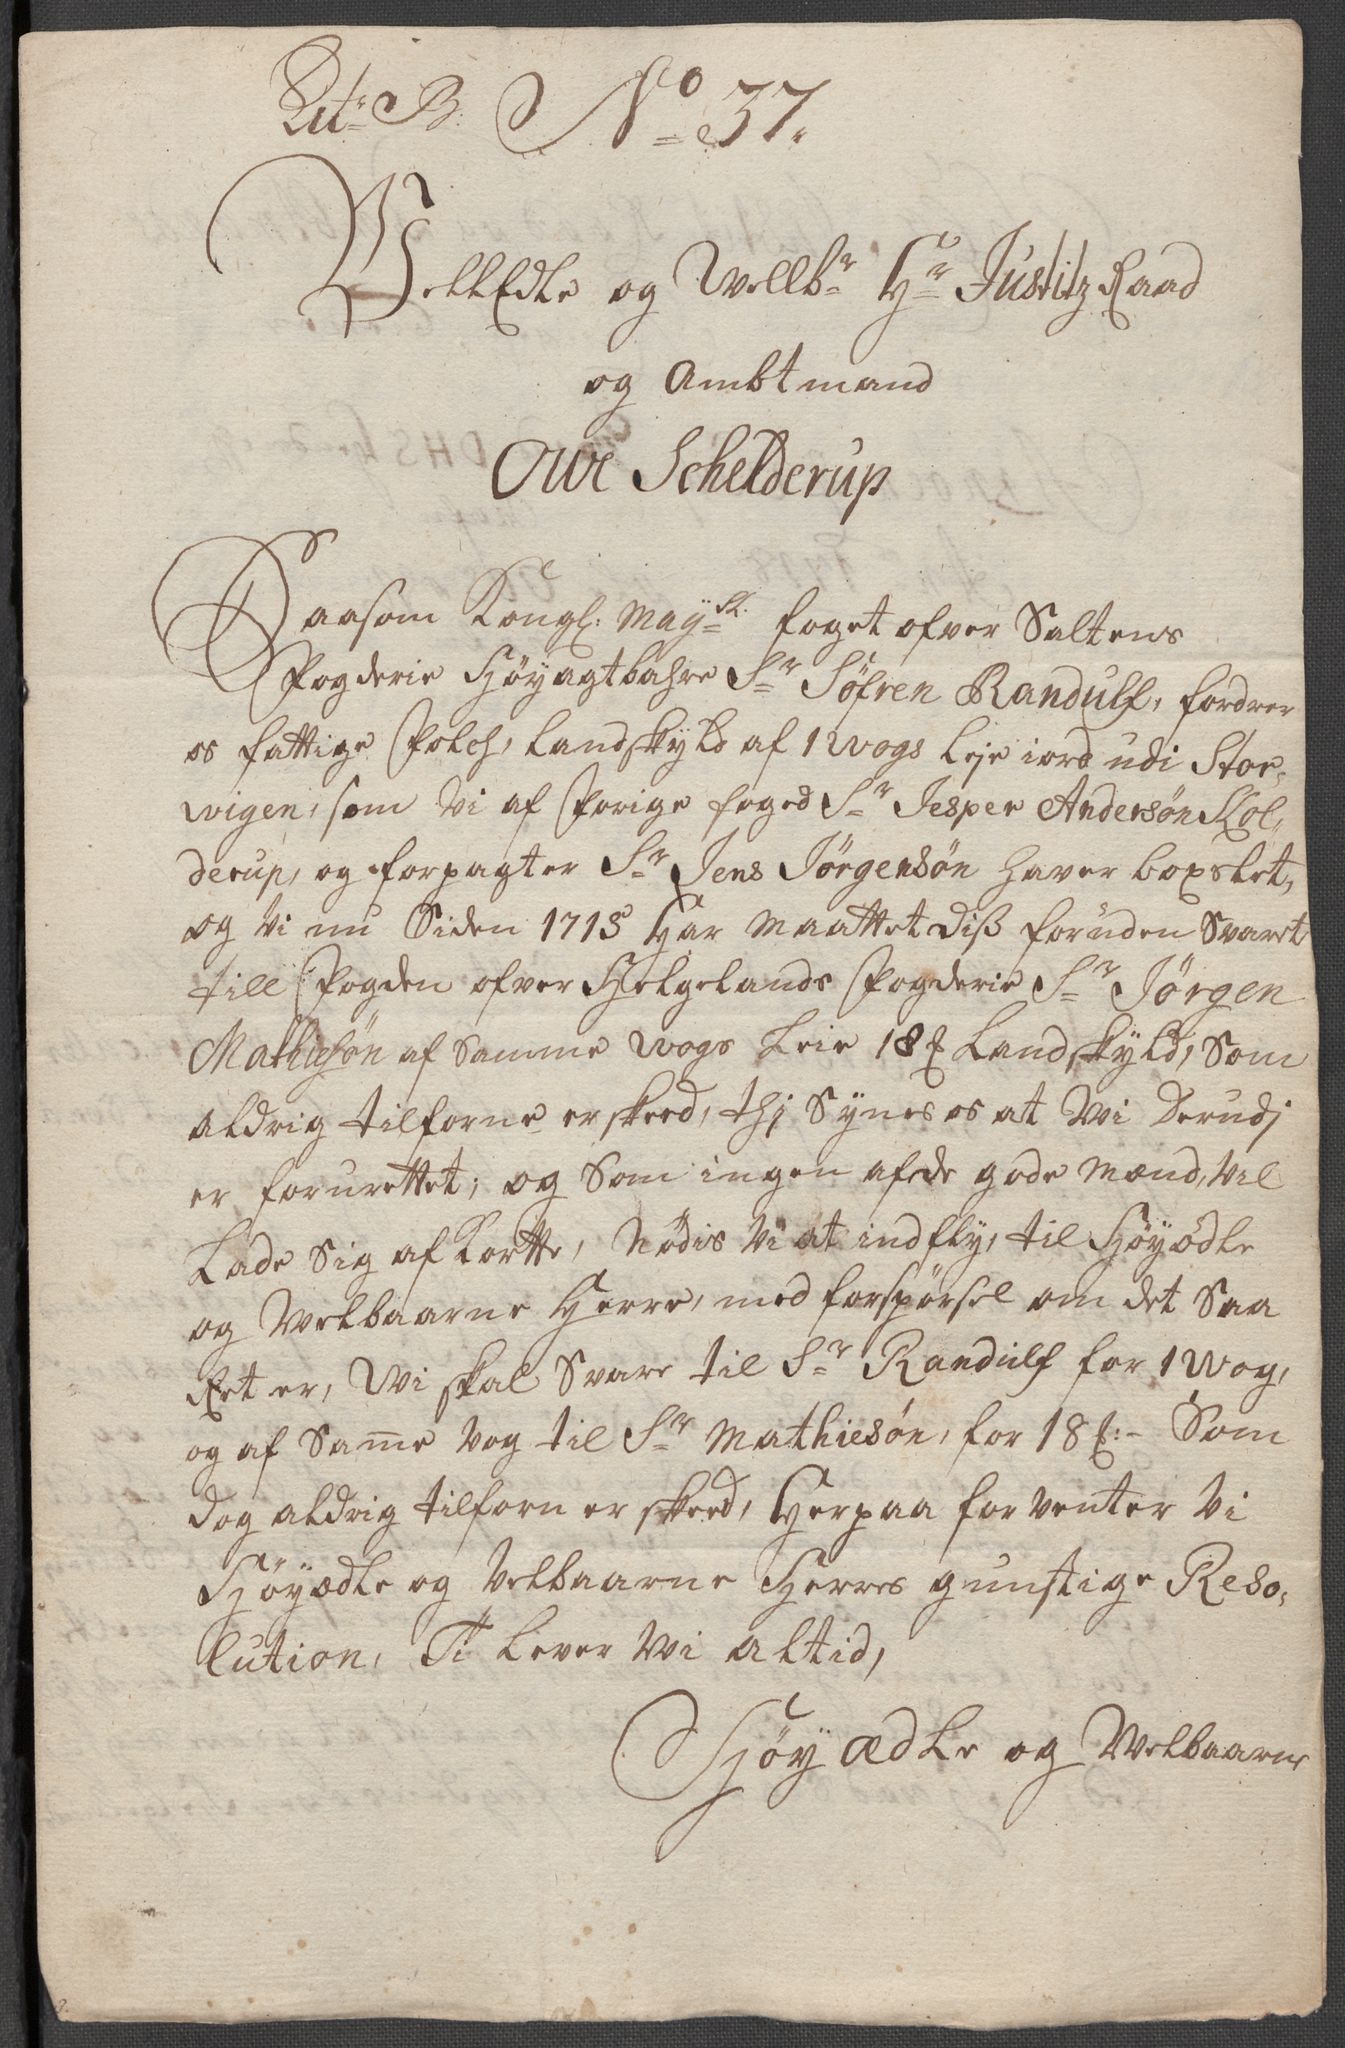 Litr B. No 37.
WelEdle og Wellbr Hr Justitz Raad
og Ambtmand
Owe Schelderup
Saasom Kongl: Maysts foget ofver Saltens
Fogderie Høyagtbahre Sr Søfren Randulf, fordrer
os fattige Folch, Landskyld af 1 wogs leje iord udi Stor-
wigen, som Vi af forige foged Sr Jesper Andersøn Kol-
derup, og forpagter Sr Jens Jørgensøn haver boxslet,
og Vi nu Siden 1715 har maattet diß foruden Svaret
till Fogden ofver Helgelands Fogderie Sr Jørgen
Mathiesøn af Samme wogs Leie 18 ℔ Landskyld, Som
aldrig tilforne er skeed, thj Synes os at Vi derudj
er forurettet; og Som ingen af de gode Mænd, Vil
Lade Sig af Kortte, Nødis Vi at indfly, til Høyædle
og Welbaarne Herre, med forspørsel om det Saa
Ret er, Wi skal Svare til Sr Randulf for 1 Wog,
og af Sam̄e Vog til Sr Mathiesøn, for 18 ℔:- Som
dog aldrig tilforn er skeed, Herpaa forventer Vi
Høyædle og Velbaarne Herres gunstige Reso-
lution, Ti lever Vi altid,
Høyædle og Welbaarne